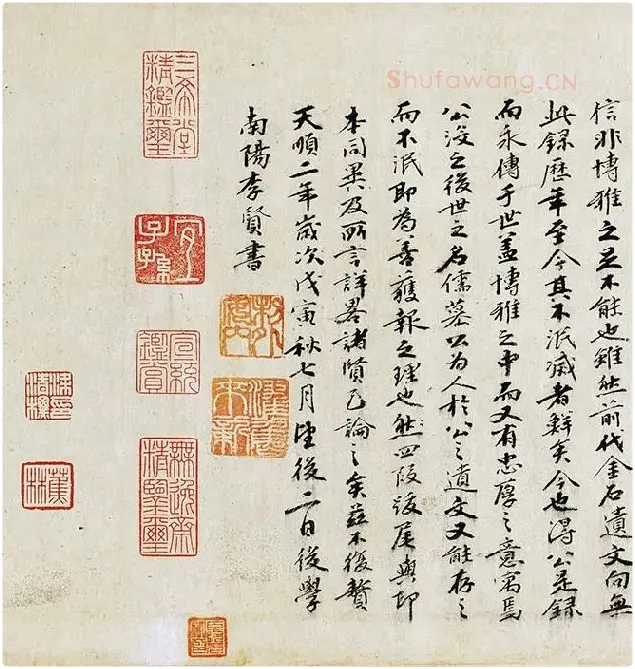 Shufawang.CN
信非博雅之至不能也雖然前代金石遺文向無
此錄歷年至今其不泯滅者鮮矣今也得公是錄
而永傳于世蓋博雅之中而又有忠厚之意寓焉
公没之後世之名儒慕公為人於公之遺文又能存之
而不泯即為善獲報之理也然四段跋尾與印
本同異及所言詳畧諸賢已論之矣茲不復贅
天順二年歲次戊寅秋七月望後二日後學
南陽李賢書
三希堂精鑑璽
宜子孫
宣統鑑賞
無逸齋精鑒璽
蕉林